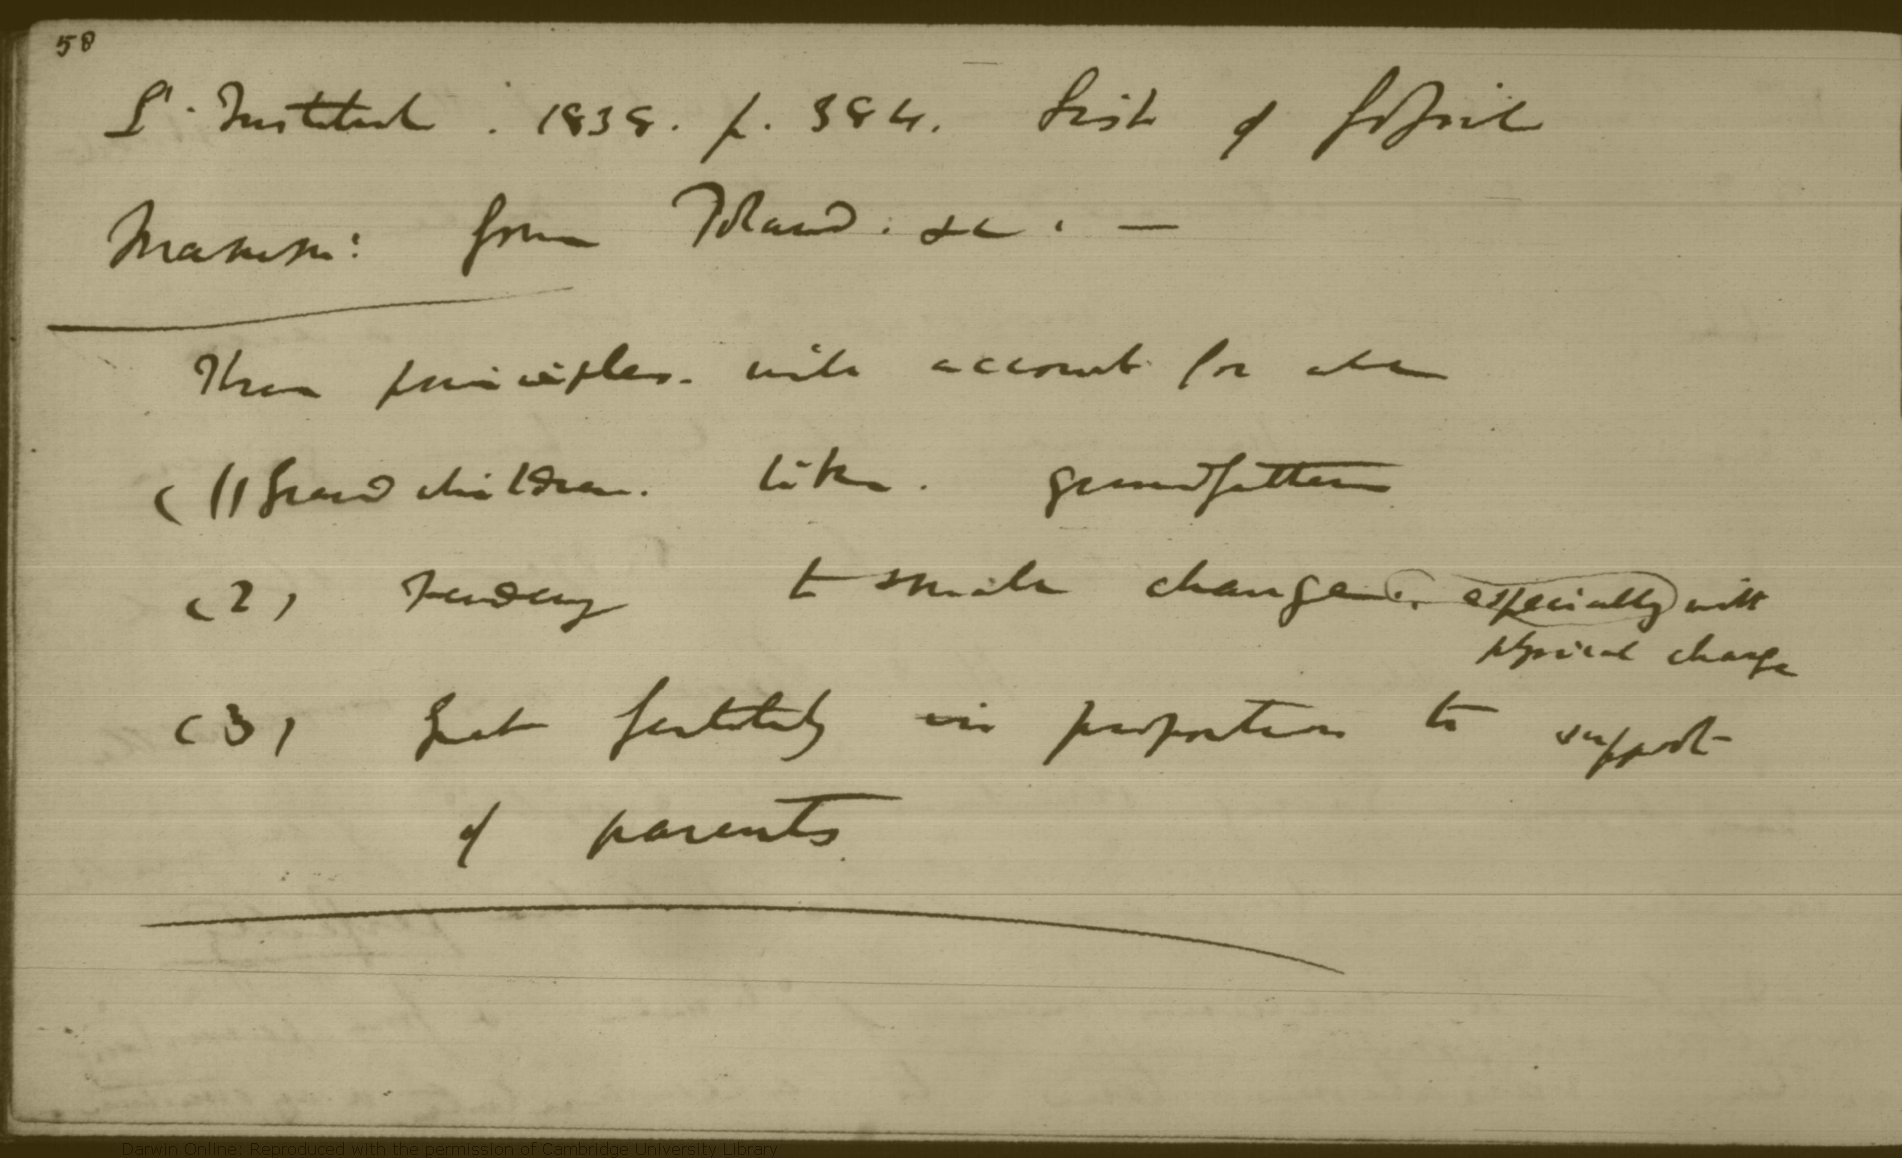 58
L'. Institut. 1838. p. 384. List of fossil
Mamm: from Poland. &c. —
Three principles. will account for all
(1) Grandchildren. like. grandfathers
(2) Tendency to small change. especially with
physical change
(3) Great fertility in proportion to support
of parents
Darwin Online: Reproduced with the permission of Cambridge University Library